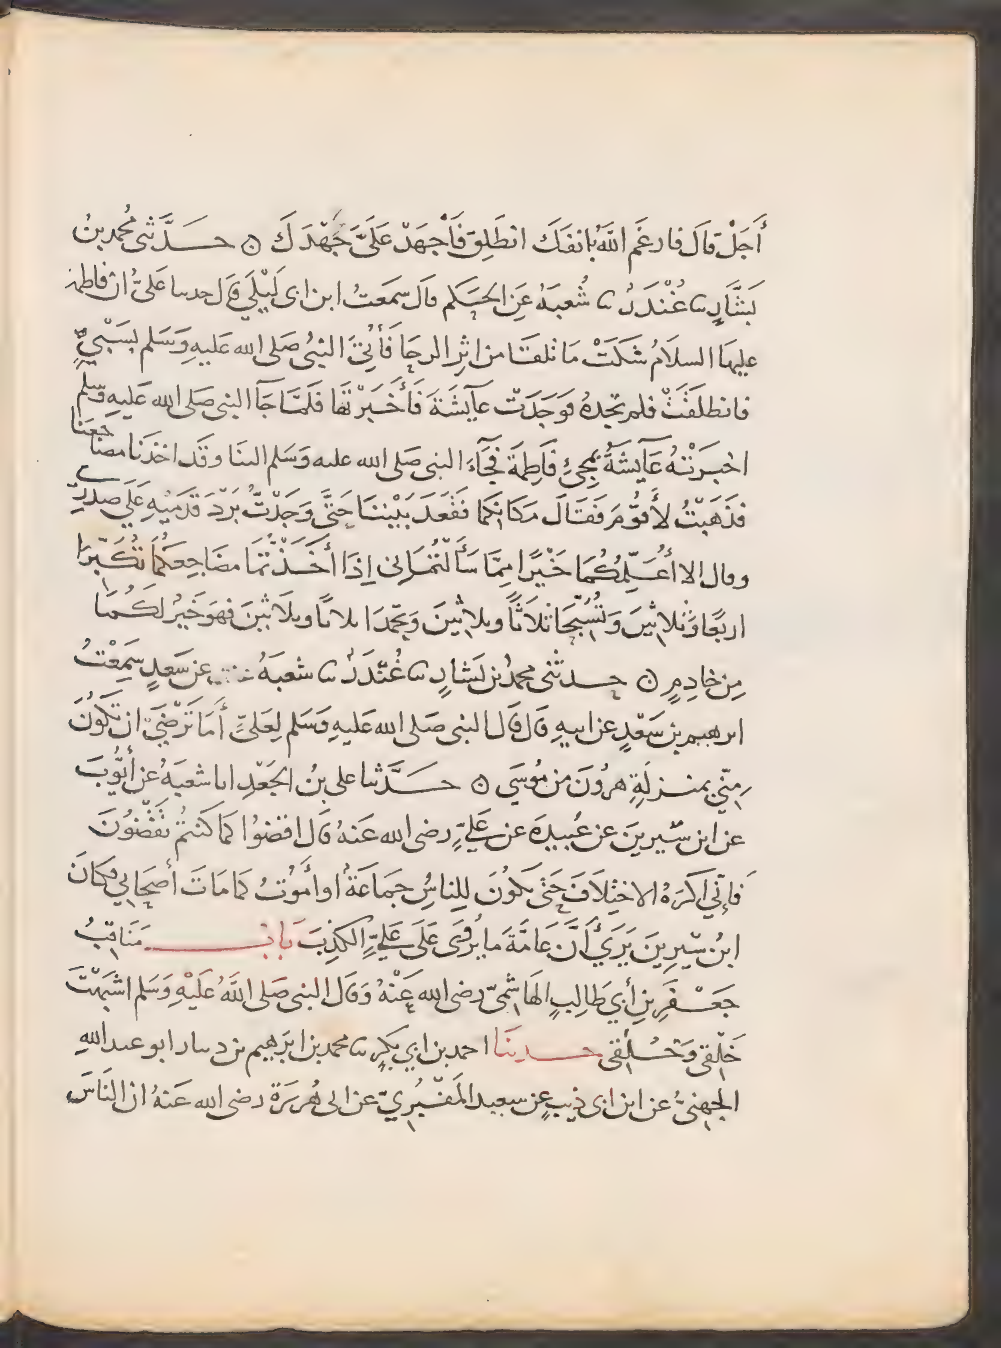 أَجَلْ قَالَ فارغَم اللَّهُ بانفَكَ انطَلِقْ فَأَجْهَدْ عَلَىَّ جَهْدَكَ ۞ حَدَّثَنى مُحمد بنُ
بَشَّارٍ نا غُنْدَرٌ نا شُعبَةُ عَنِ الحَكم قال سَمعتُ ابن ابى لَيْلَى قال حدثنا علىٌّ ان فاطمة
عليهَا السلامُ شكَتْ مَا تلقَا من اثرِ الرحَا فَأُتِىَ النبىُ صَلى الله عَليهِ وَسَلم بسَبْىٍ
فانطلَقَتْ فلم تجدهُ فوَجَدَتْ عآيشَةَ فَأَخبَرَتْهَا فلمَّا جَآءَ النبى صَلى الله عَليهِ وسلم
اخبرَتْهُ عَآيشَةُ بمَجِىءِ فَاطِمَةَ فَجَآءَ النبى صَلى الله عليه وَسَلم الينَا وقَد اخذنَا مضاجعَنا
فذَهَبْتُ لأَقُومَ فَقَالَ مَكَانَكمَا فَقَعَدَ بَيْننَا حَتَّى وَجَدْتُ بَرْدَ قَدَمَيْهِ عَلَى صَدْرِى
وقال الا أُعَلِّمُكُمَا خَيْرًا مِمَّا سَأَلْتُمَانى اِذَا أَخَذْتُمَا مضَاجِعَكُمَا تُكَبِّرَا
اربَعًا وَثلاثينَ وَتُسَبِّحَا ثلَاثًا وثلاثينَ وَتحْمَدَا ثلاثا وثلاثينَ فهوَ خَيرٌ لكُمَا
مِن خَادِمٍ ۞ حدثنى محمدُ بن بَشارٍ نا غُنْدَرٌ نا شعبَةُ عن سَعدٍ سَمِعْتُ
ابرهيم بن سَعْدٍ عن ابيهِ قال قَالَ النبى صَلى الله عَليهِ وَسَلم لِعَلىٍّ أَمَا تَرْضَى ان تَكُونَ
مِنّى بمنزلَةِ هرُونَ من مُوسَى ۞ حَدَّثنا على بنُ الجَعْدِ انا شعبَةُ عن أَيُّوبَ
عن ابن سيرينَ عن عَبيدَةَ عن عَلىٍّ رضى الله عَنهُ قال اقضُوا كمَا كنتُم تَقْضُونَ
فَإنِّى اكرَهُ الاختِلَافَ حَتَّى يَكُونَ لِلناسِ جمَاعَةٌ او أَمُوْتُ كمَا مَاتَ أَصحَابِى فكَانَ
ابنُ سيرِينَ يَرَى أَنَّ عَامَّةَ ما يُروَى عَلَى عَلىٍّ الكَذِبَ بَابُ مَنَاقِبُ
جَعْفَرِ بنِ أَبِى طَالِبٍ الهَاشمِىّ رضى الله عَنْهُ وَقَال النبى صَلى اللهُ عَلَيْهِ وَسَلم اشبَهْتَ
خَلْقى وَخُلُقى حدثنَا احمد بن ابى بكرٍ نا محمد بن ابرَهيم بن دينار ابو عبد اللهِ
الجهَنىُّ عن ابن ابى ذيبٍ عن سعيد المقبُرىّ عن ابى هُرَيرَةَ رضى الله عَنهُ ان الناسَ